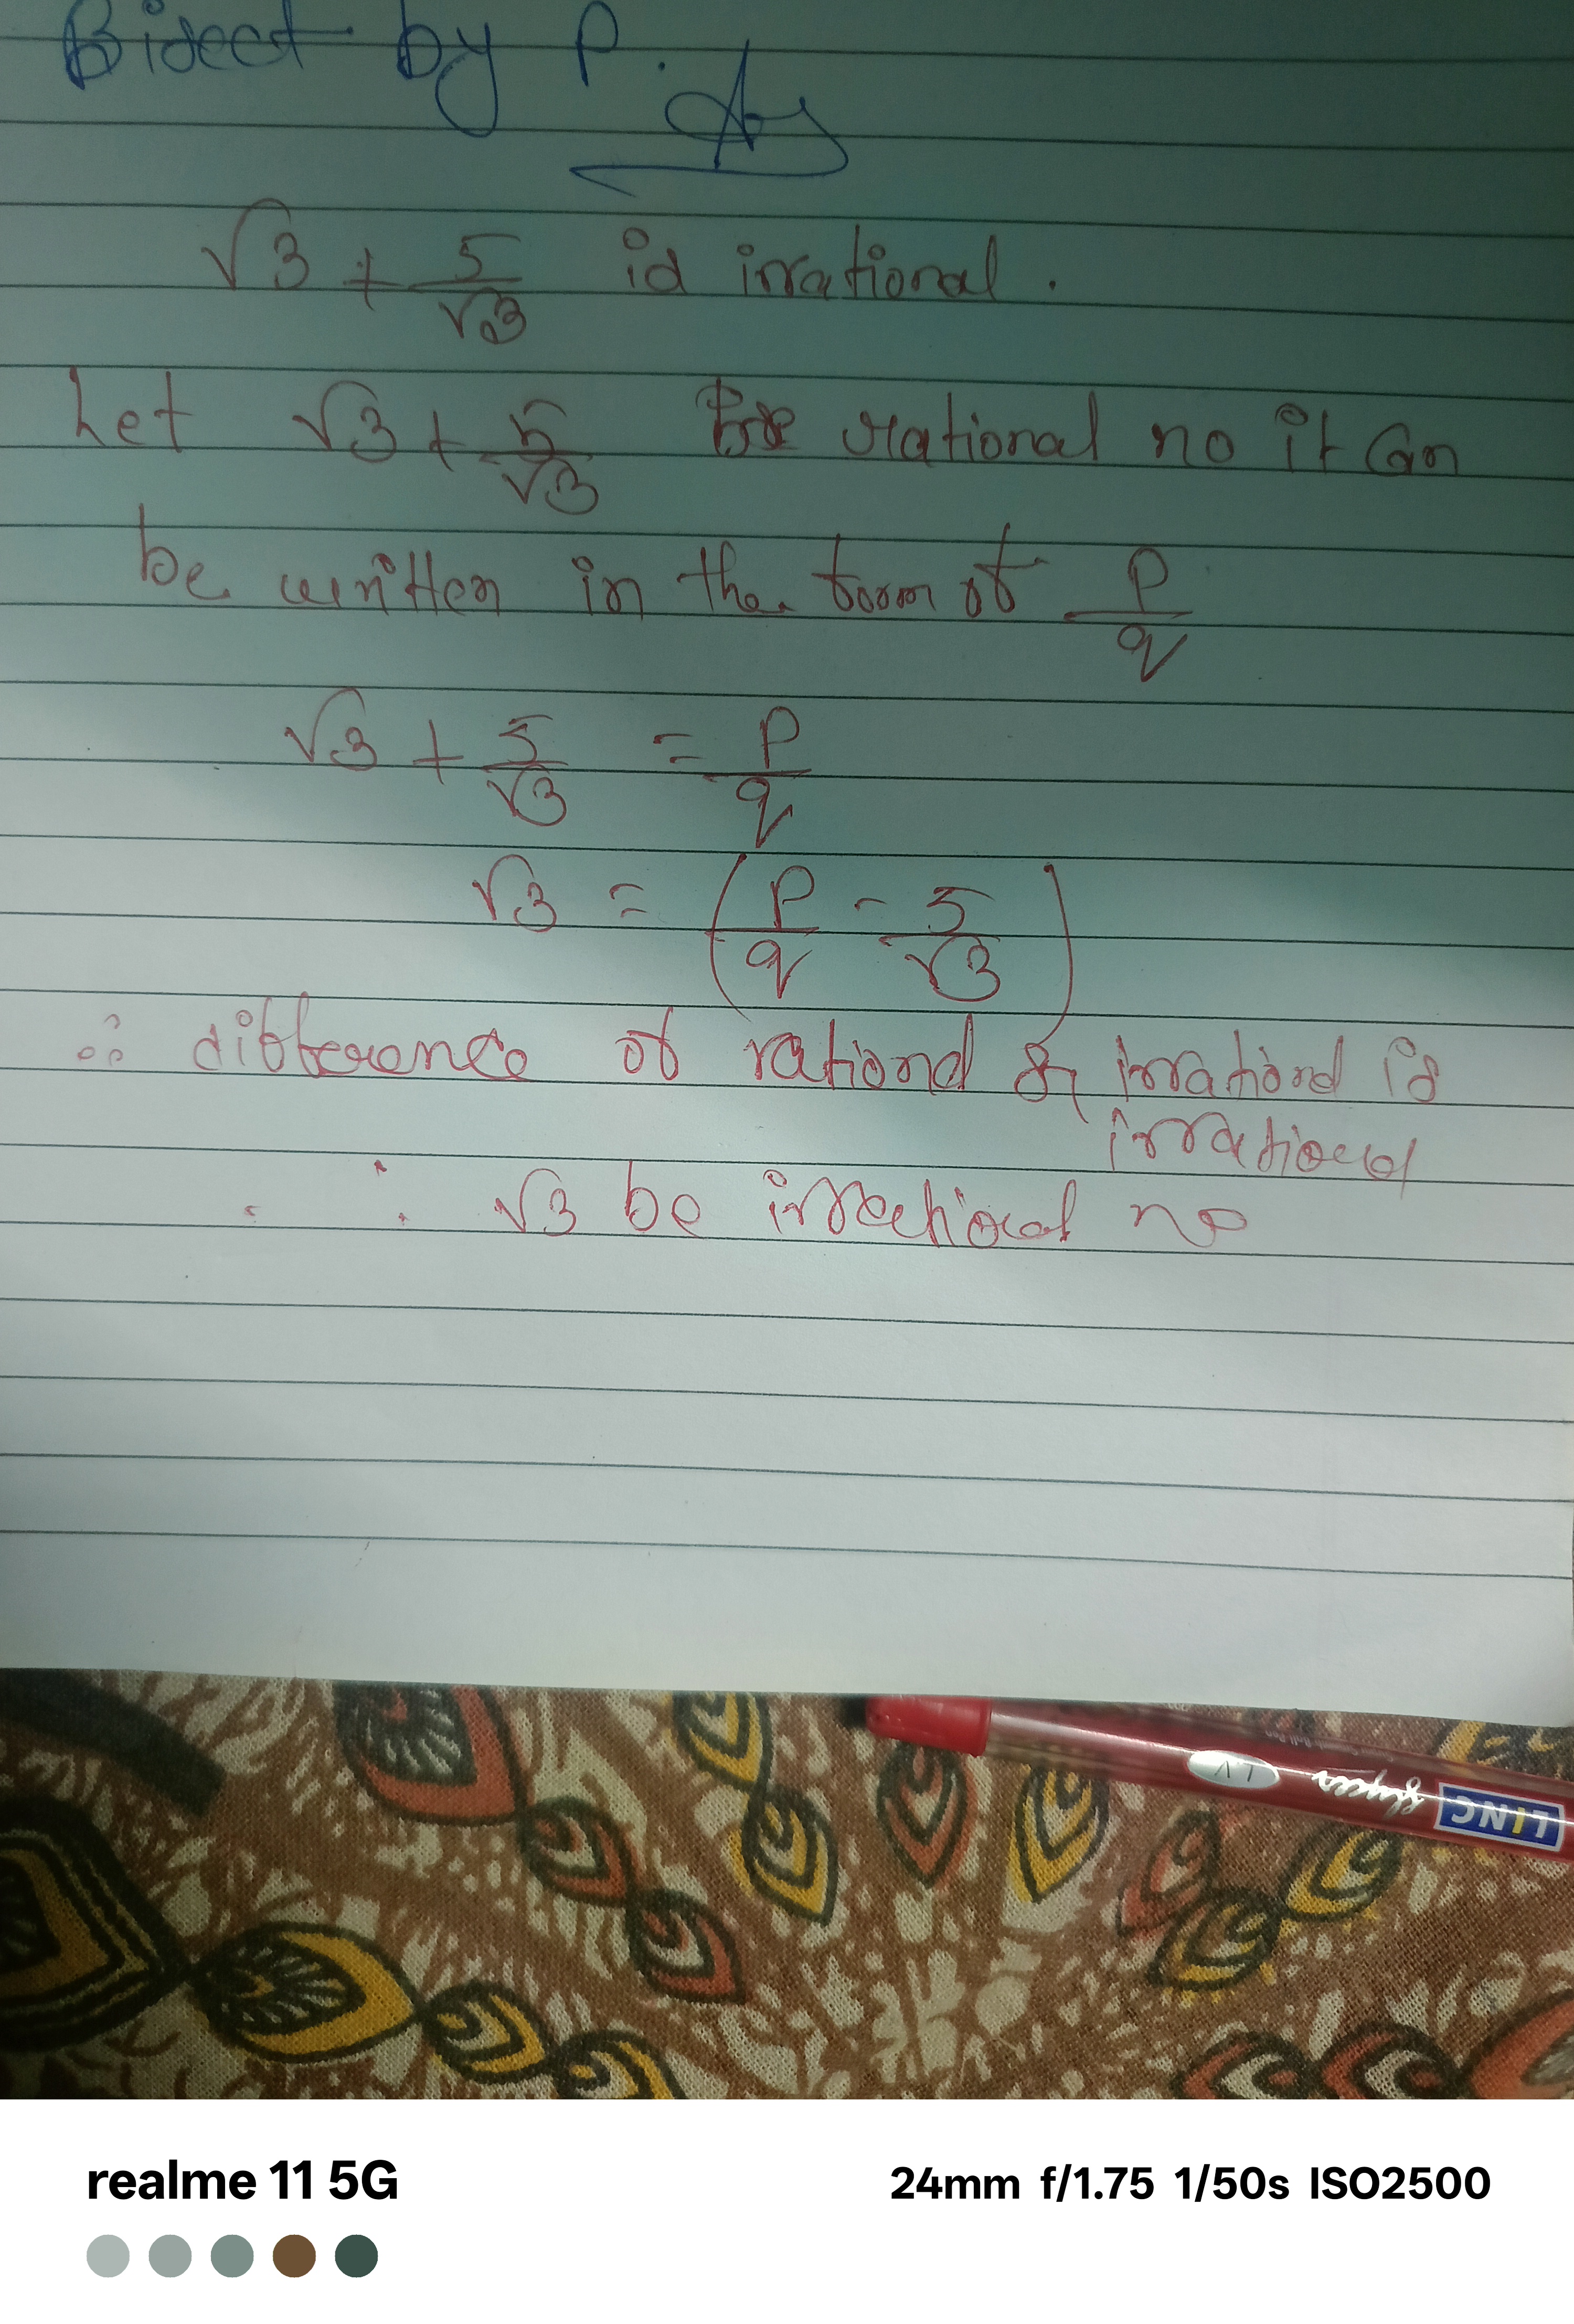 Bisect by P.
√3 + 5/√3 id irrational.
Let √3 + 5/√3 be rational no it can
be written in the form of P/q
√3 + 5/√3 = P/q
√3 = (P/q - 5/√3)
∴ difference of rational & irrational is
irrational
∴ √3 be irrational no
LINC
glycer
LV
realme 11 5G
24mm f/1.75 1/50s ISO2500